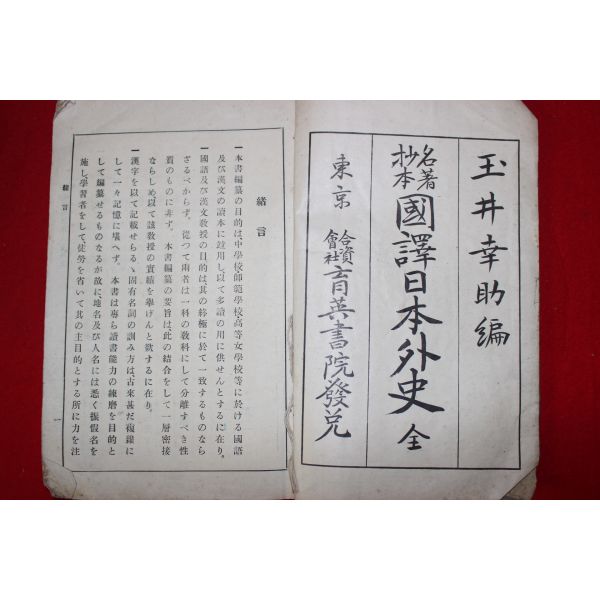 玉井幸助編
名著
抄本
國譯日本外史 全
東京
合資
會社
育英書院發兌
緒言
一本書編纂の目的は、中學校師範學校高等女學校等に於ける國語
及び漢文の讀本に竝用し以て多讀の用に供せんとするに在り。
一國語及び漢文敎授の目的は、其の終極に於て一致するものなら
ざるべからず。從つて兩者は一科の敎科にして分離すべき性
質のものに非ず。本書編纂の要旨は、此の結合をして一層密接
ならしめ以て該敎授の實績を擧げんと欲するに在り。
一漢字を以て記載せらるゝ固有名詞の訓み方は、古來甚だ複雜に
して一々記憶に堪へず。本書は專ら讀書能力の練磨を目的と
して編纂せるものなるが故に、地名及び人名には悉く振假名を
施し、學習者をして、徒勞を省いて其の主目的とする所に力を注
緒言
一